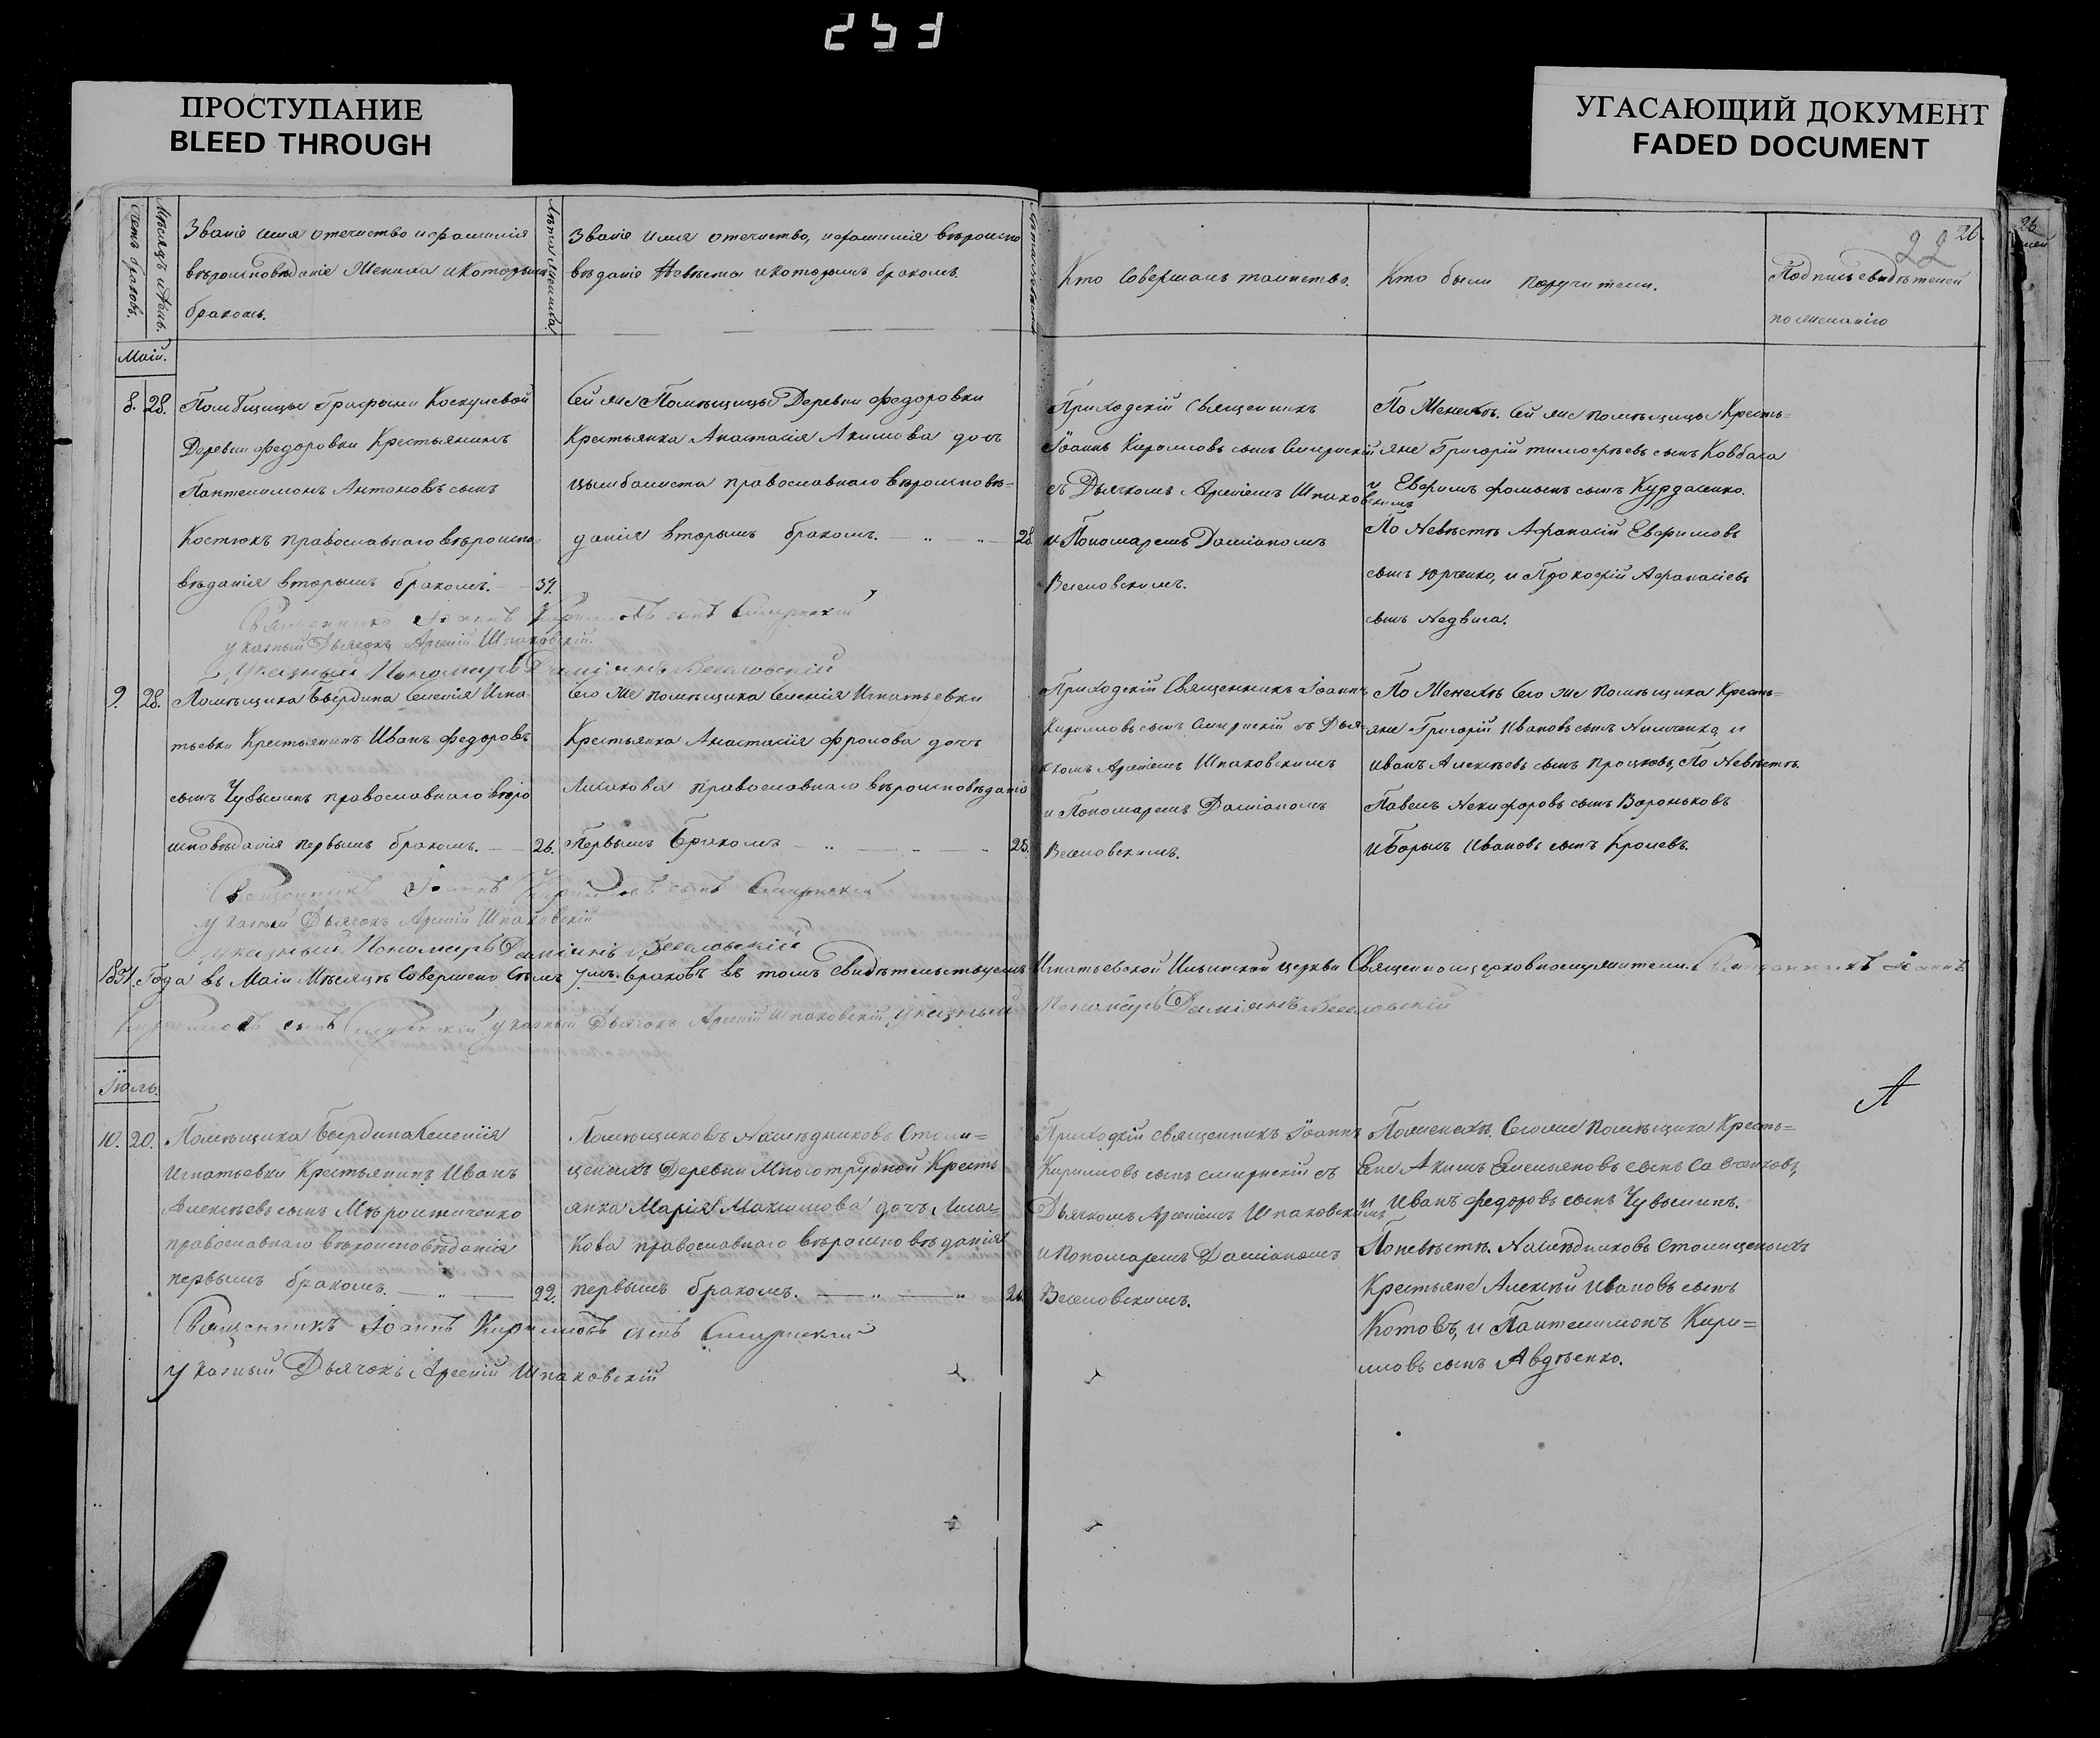 253
ПРОСТУПАНИЕ
BLEED THROUGH
УГАСАЮЩИЙ ДОКУМЕНТ
FADED DOCUMENT
22 26.
26
Счетъ браковъ.
Мѣсяцъ и день.
Званіе имя отечиство и фамилія
вѣроисповѣданіе Жениха и Которымъ
бракомъ.
Лѣта жениха.
Званіе имя отечиство, и фамилія вѣроиспо
вѣданіе Невѣсты и которымъ бракомъ.
Лѣта невѣсты
Кто Совершалъ таинство.
Кто были поручители.
Подпись свидѣтелей
по желанію
Маій.
8. 28.
Помѣщицы Графыни
Деревни Федоровки Крестьянинъ
Пантелимонъ Антоновъ сынъ
Костюкъ православнаго вѣроиспо-
вѣданія вторымъ бракомъ. 37.
Сей же Помѣщицы Деревни Федоровки
Крестьянка Анастасія Акимова дочь
Цымбалиста православнаго вѣроисповѣ=
данія вторымъ бракомъ. 28.
Приходскій Священникъ
Іоаннъ Кириловъ сынъ Смирнскій
съ Дьячкомъ Арсеніемъ Шпаковскимъ
и Пономаремъ Даміаномъ
Веселовскимъ.
По Женихѣ. Сей же помѣщицы Кресть=
яне Григорій Тимофѣевъ сынъ Ковбаса
и Ефимъ Фоминъ сынъ Курдасенко.
По Невѣстѣ Афанасій Евфимовъ
сынъ Юрченко, и Прокофій Афанасіевъ
сынъ Недвига.
Священникъ Іоаннъ Кириловъ сынъ Смирнскій
указный Дьячокъ Арсеній Шпаковскій.
Указный Пономарь Даміянъ Веселовскій
9. 28.
Помѣщика Свердина Селенія Игна
тьевки Крестьянинъ Иванъ Федоровъ
сынъ Чувылинъ православнаго вѣро
исповѣданія первымъ бракомъ. 26.
Его же помѣщика Селенія Игнатьевки
Крестьянка Анастасія Фролова дочь
Лисакова православнаго вѣроисповѣданія
Первымъ Бракомъ 25.
Приходскій Священникъ Іоаннъ
Кириловъ сынъ Смирнскій съ Дья-
чкомъ Арсеніемъ Шпаковскимъ
и Пономаремъ Даміаномъ
Веселовскимъ.
По Женихѣ Его же помѣщика Кресть=
яне Григорій Ивановъ сынъ и
Иванъ Алексѣевъ сынъ По Невѣстѣ.
Павелъ Никифоровъ сынъ Вороньковъ
и Борысъ Ивановъ сынъ
Священникъ Іоаннъ Кириловъ сынъ Смирнскій
указный Дьячокъ Арсеній Шпаковскій
Указный Пономарь Даміянъ Веселовскій
1837. Года въ Маіи Мѣсяцѣ Совершено Семь 7мь. браковъ въ томъ Свидѣтельствуемъ Игнатьевской Ильинской церкви Священноцерковнослужители. Священникъ Іоаннъ
Кириловъ сынъ Смирнскій указный Дьячокъ Арсеній Шпаковскій, Указный Пономарь Даміянъ Веселовскій
Іюль.
10. 20.
Помѣщика Свердина Селенія
Игнатьевки Крестьянинъ Иванъ
Алексѣевъ сынъ Мѣрошниченко
православнаго вѣроисповѣданія
первымъ бракомъ. 22.
Помѣщиковъ Наслѣдниковъ Столи=
ценыхъ Деревни Многотрудной Кресть
янка Марія Максимова дочь Лиса=
кова православнаго вѣроисповѣданія
первымъ бракомъ.
Приходскій священникъ Іоаннъ
Кириловъ сынъ Смирнскій съ
Дьячкомъ Арсеніемъ Шпаковскимъ
и Пономаремъ Даміаномъ
Веселовскимъ.
По женихѣ. Его же помѣщика Кресть=
яне Акимъ Емельяновъ сынъ
и Иванъ Федоровъ сынъ Чувылинъ.
По невѣстѣ. Наслѣдниковъ Столиценыхъ
Крестьяне Алексѣй Ивановъ сынъ
Котовъ, и Пантелимонъ Кири=
ловъ сынъ Авдѣенко.
Священникъ Іоаннъ Кириловъ сынъ Смирнскій
указный Дьячокъ Арсеній Шпаковскій